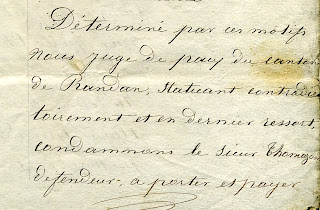 Déterminé par ces motifs
nous juge de paix du canton
de Randan, Statuant contradic
toirement et en dernier ressort,
condamnons le sieur Thomazon
defendeur, a porter et payer